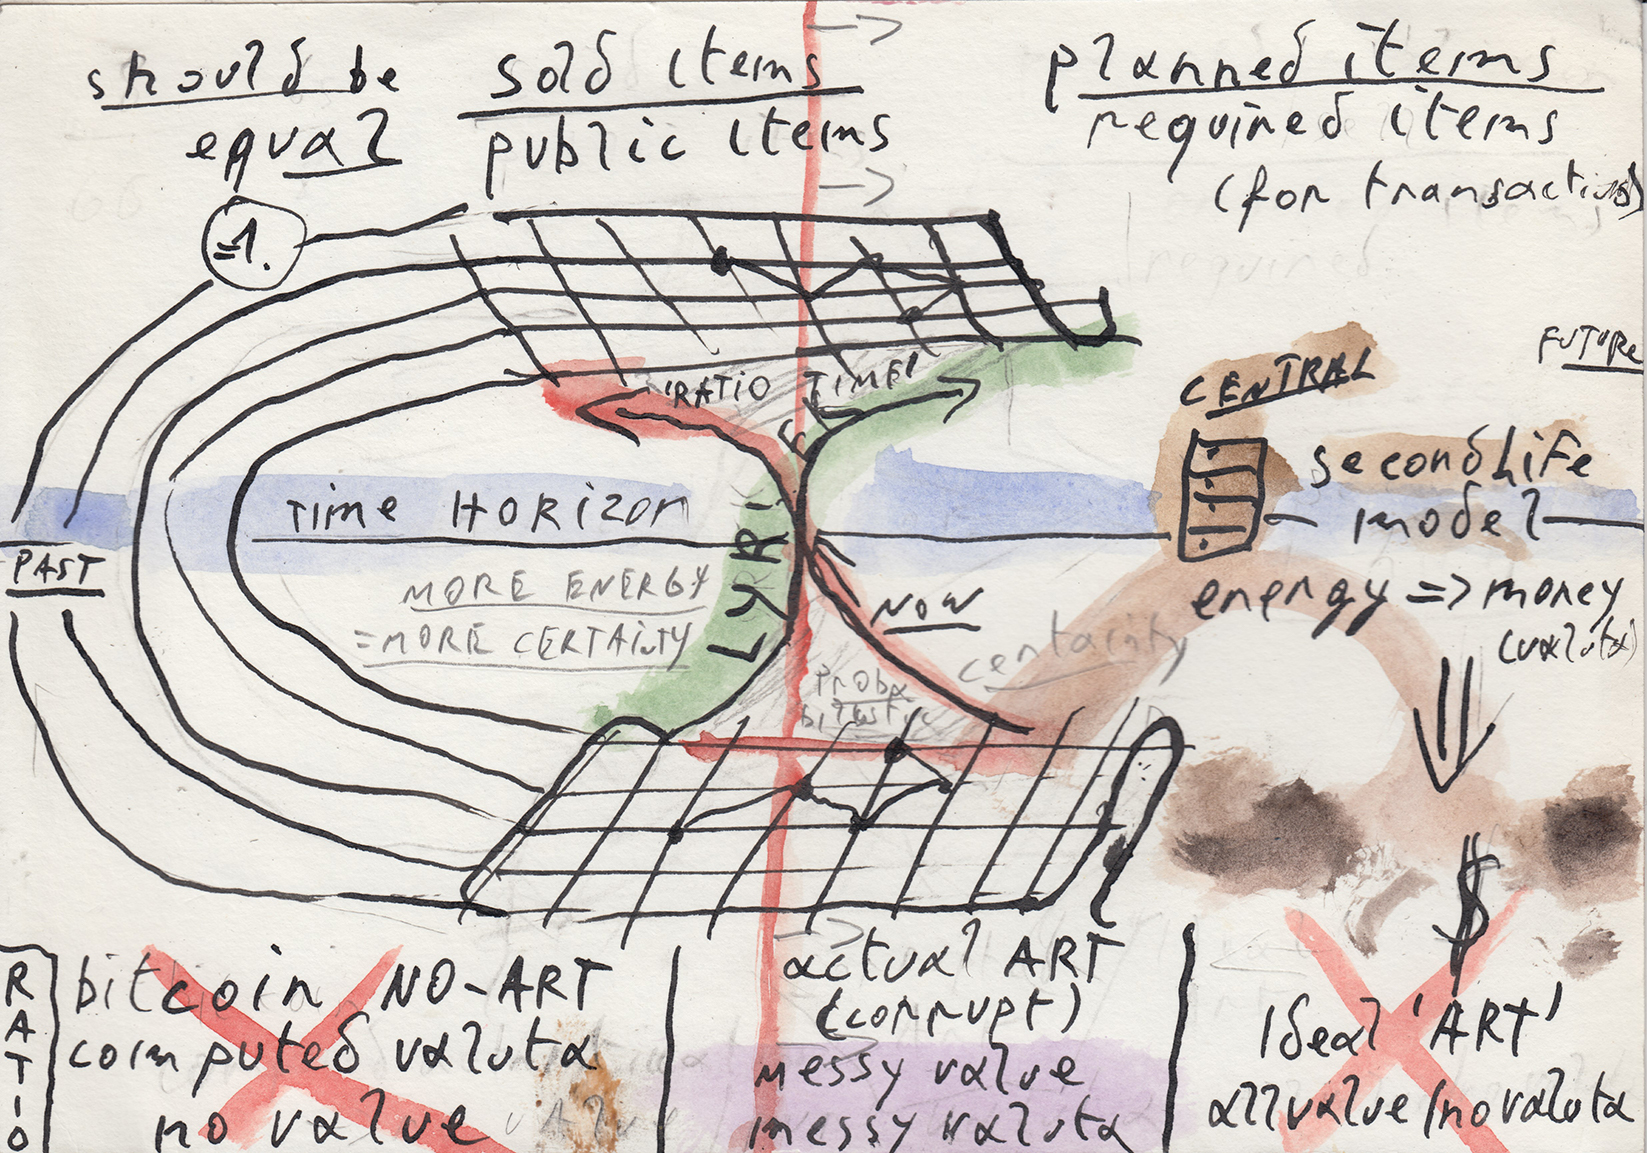 should be
equal
sold items
public items
planned items
required items
(for transactions)
=1.
'RATIO TIME'
FUTURE
CENTRAL
secondLife
model
Time HORizon
PAST
MORE ENERGY
=MORE CERTAiNTY
LYRi
NOW
certainty
energy => money
(valuta)
PROBA
biListic
$
RATIO
bitcoin NO-ART
computed valuta
no value
value
actual ART
(corrupt)
messy value
messy valuta
Ideal 'ART'
allvalue/novaluta